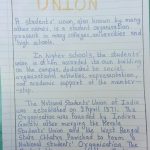 UNION
A students' union, also known by many
other names, is a student organization
present in many colleges, universities and
high schools.
In higher schools, the students'
union is often accorded its own building
on the campus, dedicated to social,
organizational activities, representation,
and academic support of the member-
ship.
The National Students' Union of India
was established on 9 April 1971. The
Organisation was founded by Indira
Gandhi after merging the Kerala
Students Union and the West Bengal
State Chhatra Parishad to form a
National Students' Organisation. The